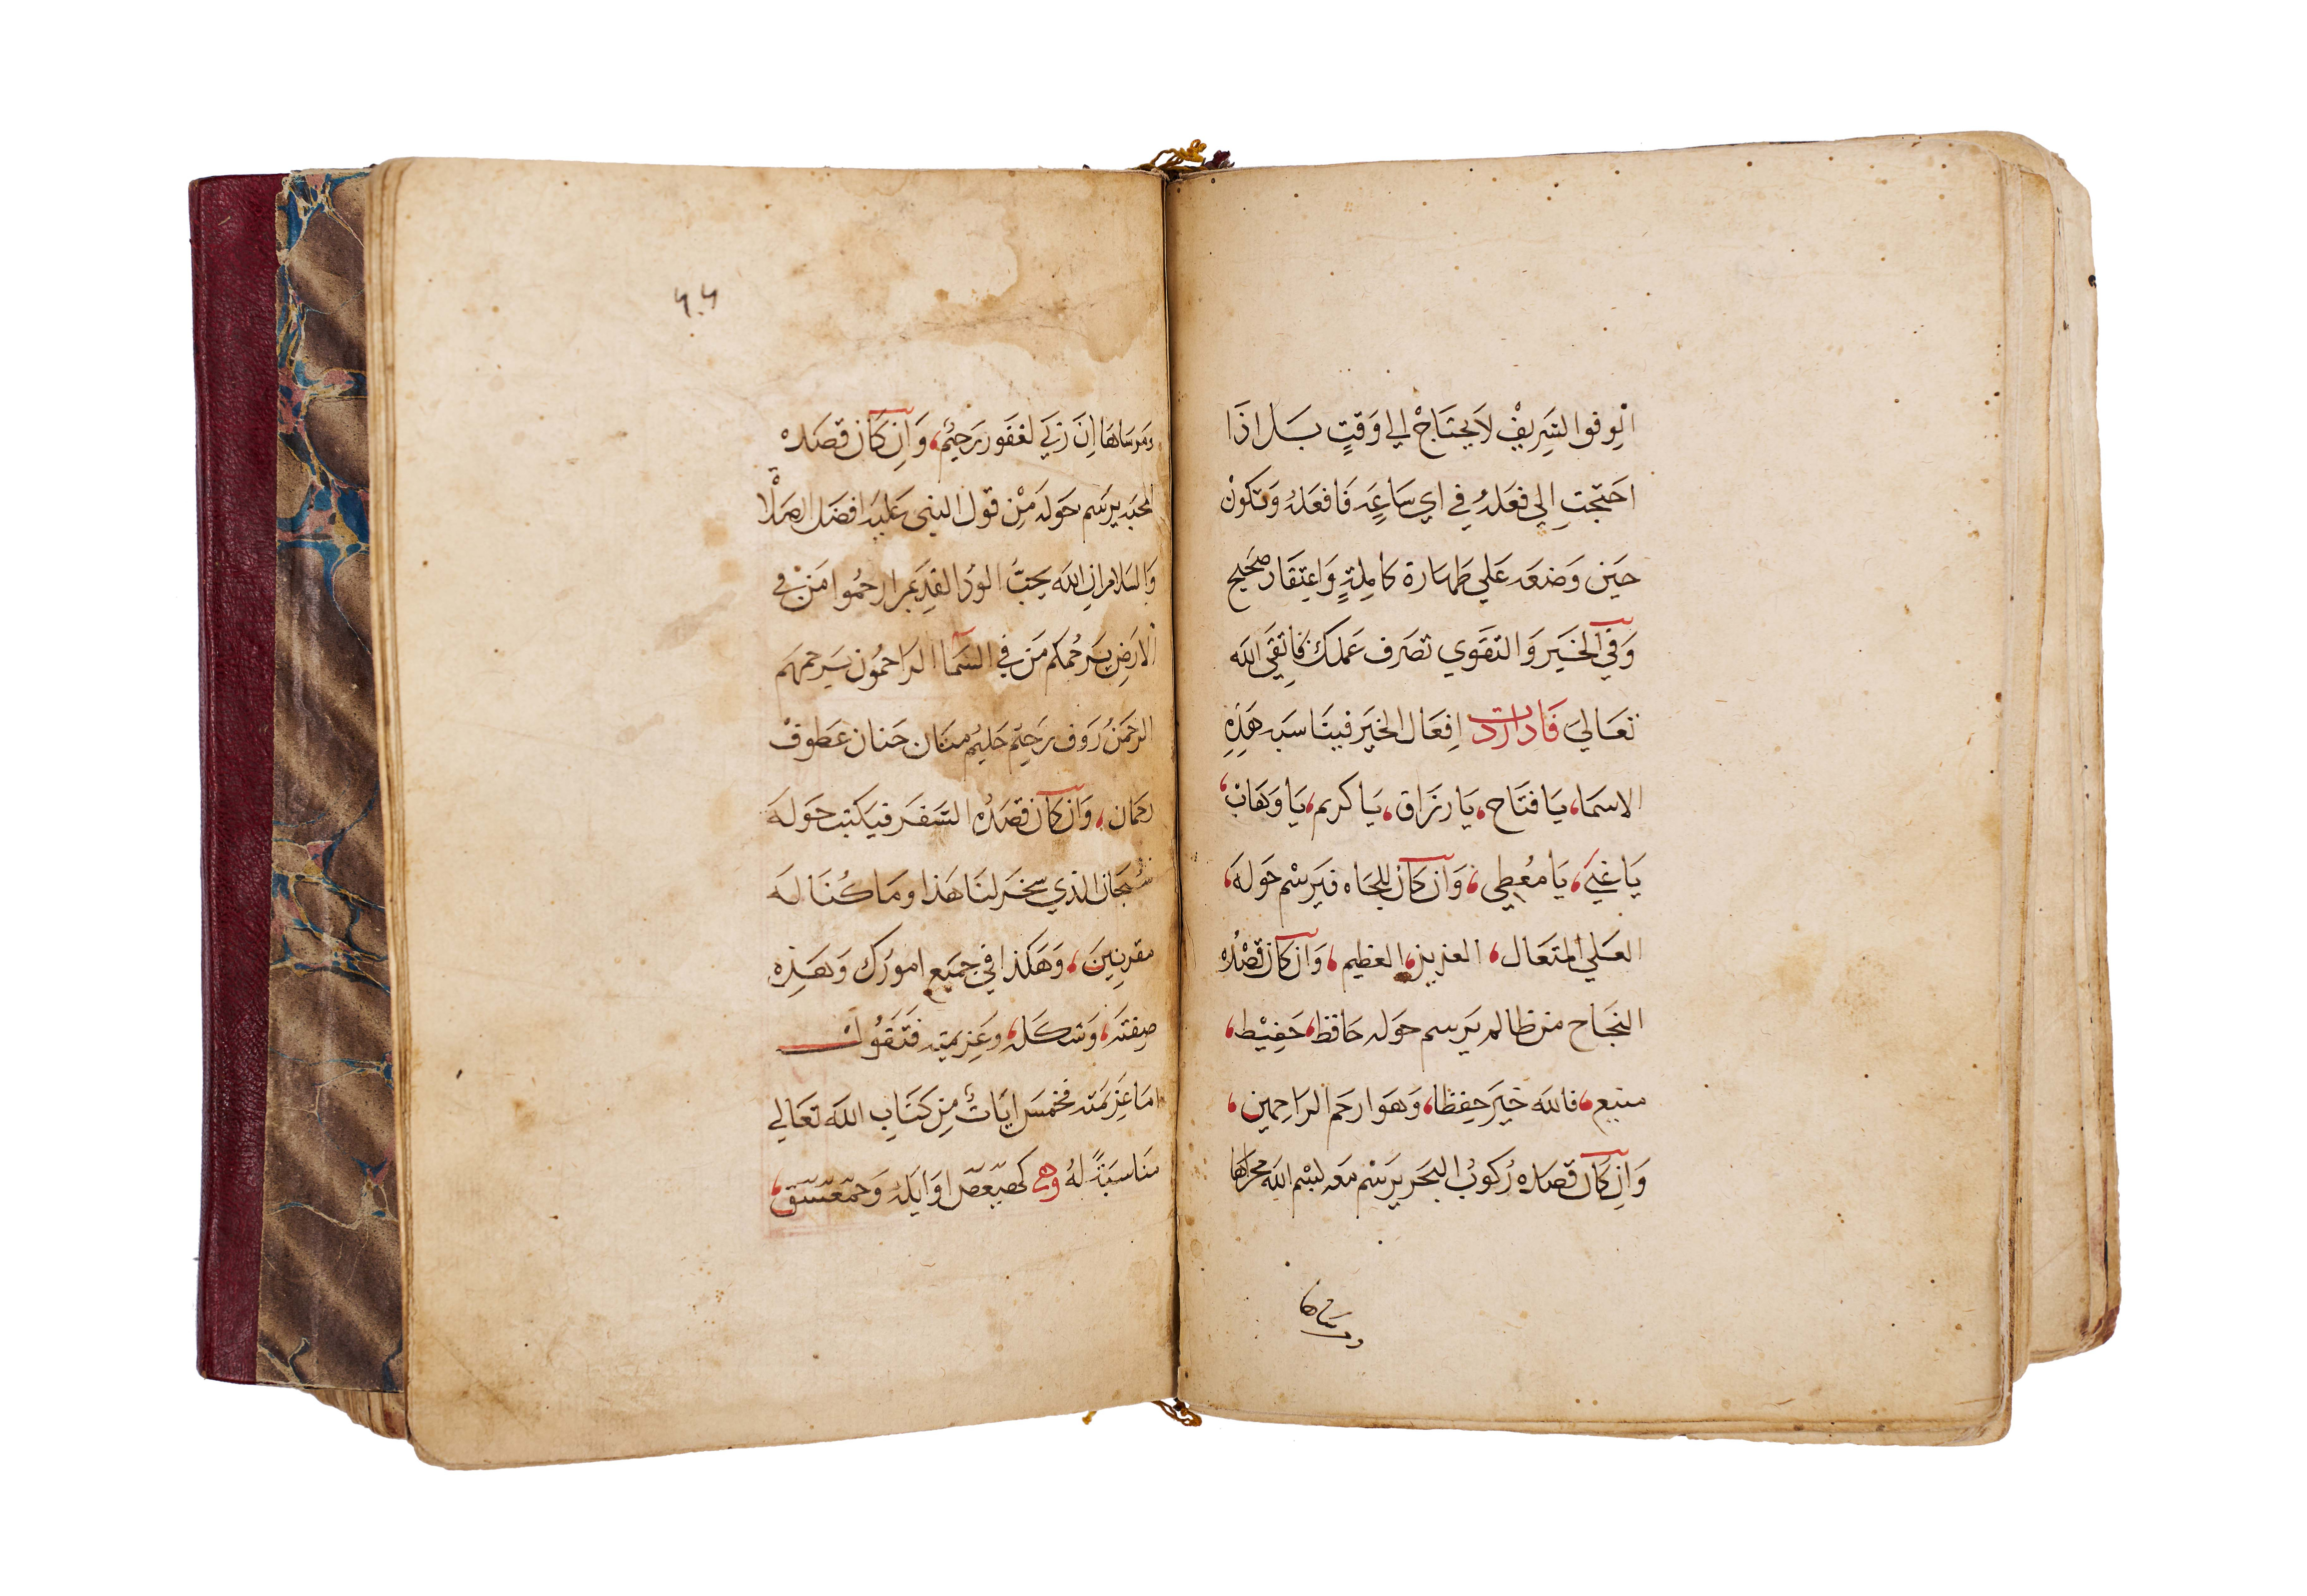 الوفق الشريف لا يحتاج الي وقتٍ بل اذا
احتجت الي فعله في اي ساعةٍ فافعله وتكون
حين وضعه علي طهارة كاملةٍ واعتقاد صحيح
وفي الخير والتقوي تصرف عملك فاتقي الله
تعالي فاذا اردت افعال الخير فيناسبه هذه
الاسماء، يا فتاح، يا رزاق، يا كريم، يا وهاب،
يا غني، يا معطي، وان كان للجاه فيرسم حوله،
العلي المتعال، العزيز، العظيم، وان كان قصده
النجاح من ظالم يرسم حوله حافظ، حفيظ،
منيع، فالله خير حفظا، وهو ارحم الراحمين،
وان كان قصده ركوب البحر يرسم معه بسم الله مجراها
ومرساها
ومرساها ان ربي لغفور رحيم، وان كان قصده
المحبه يرسم حوله من قول النبي عليه افضل الصلاة
والسلام ان الله يحبُّ الود القديم ارحموا من في
الارض يرحمكم من في السما الراحمون يرحمهم
الرحمن رؤف رحيم حليم منان حنان عطوف
رحمان، وان كان قصده السفر فيكتب حوله
سبحان الذي سخر لنا هذا وما كنا له
مقرنين، وهكذا في جميع امورك وهذه
صفته، وشكله، وعزيمته فتقول
اما عزيمته فخمس ايات من كتاب الله تعالي
مناسبةً له وهي كهيعص اوايله وحمعسق،